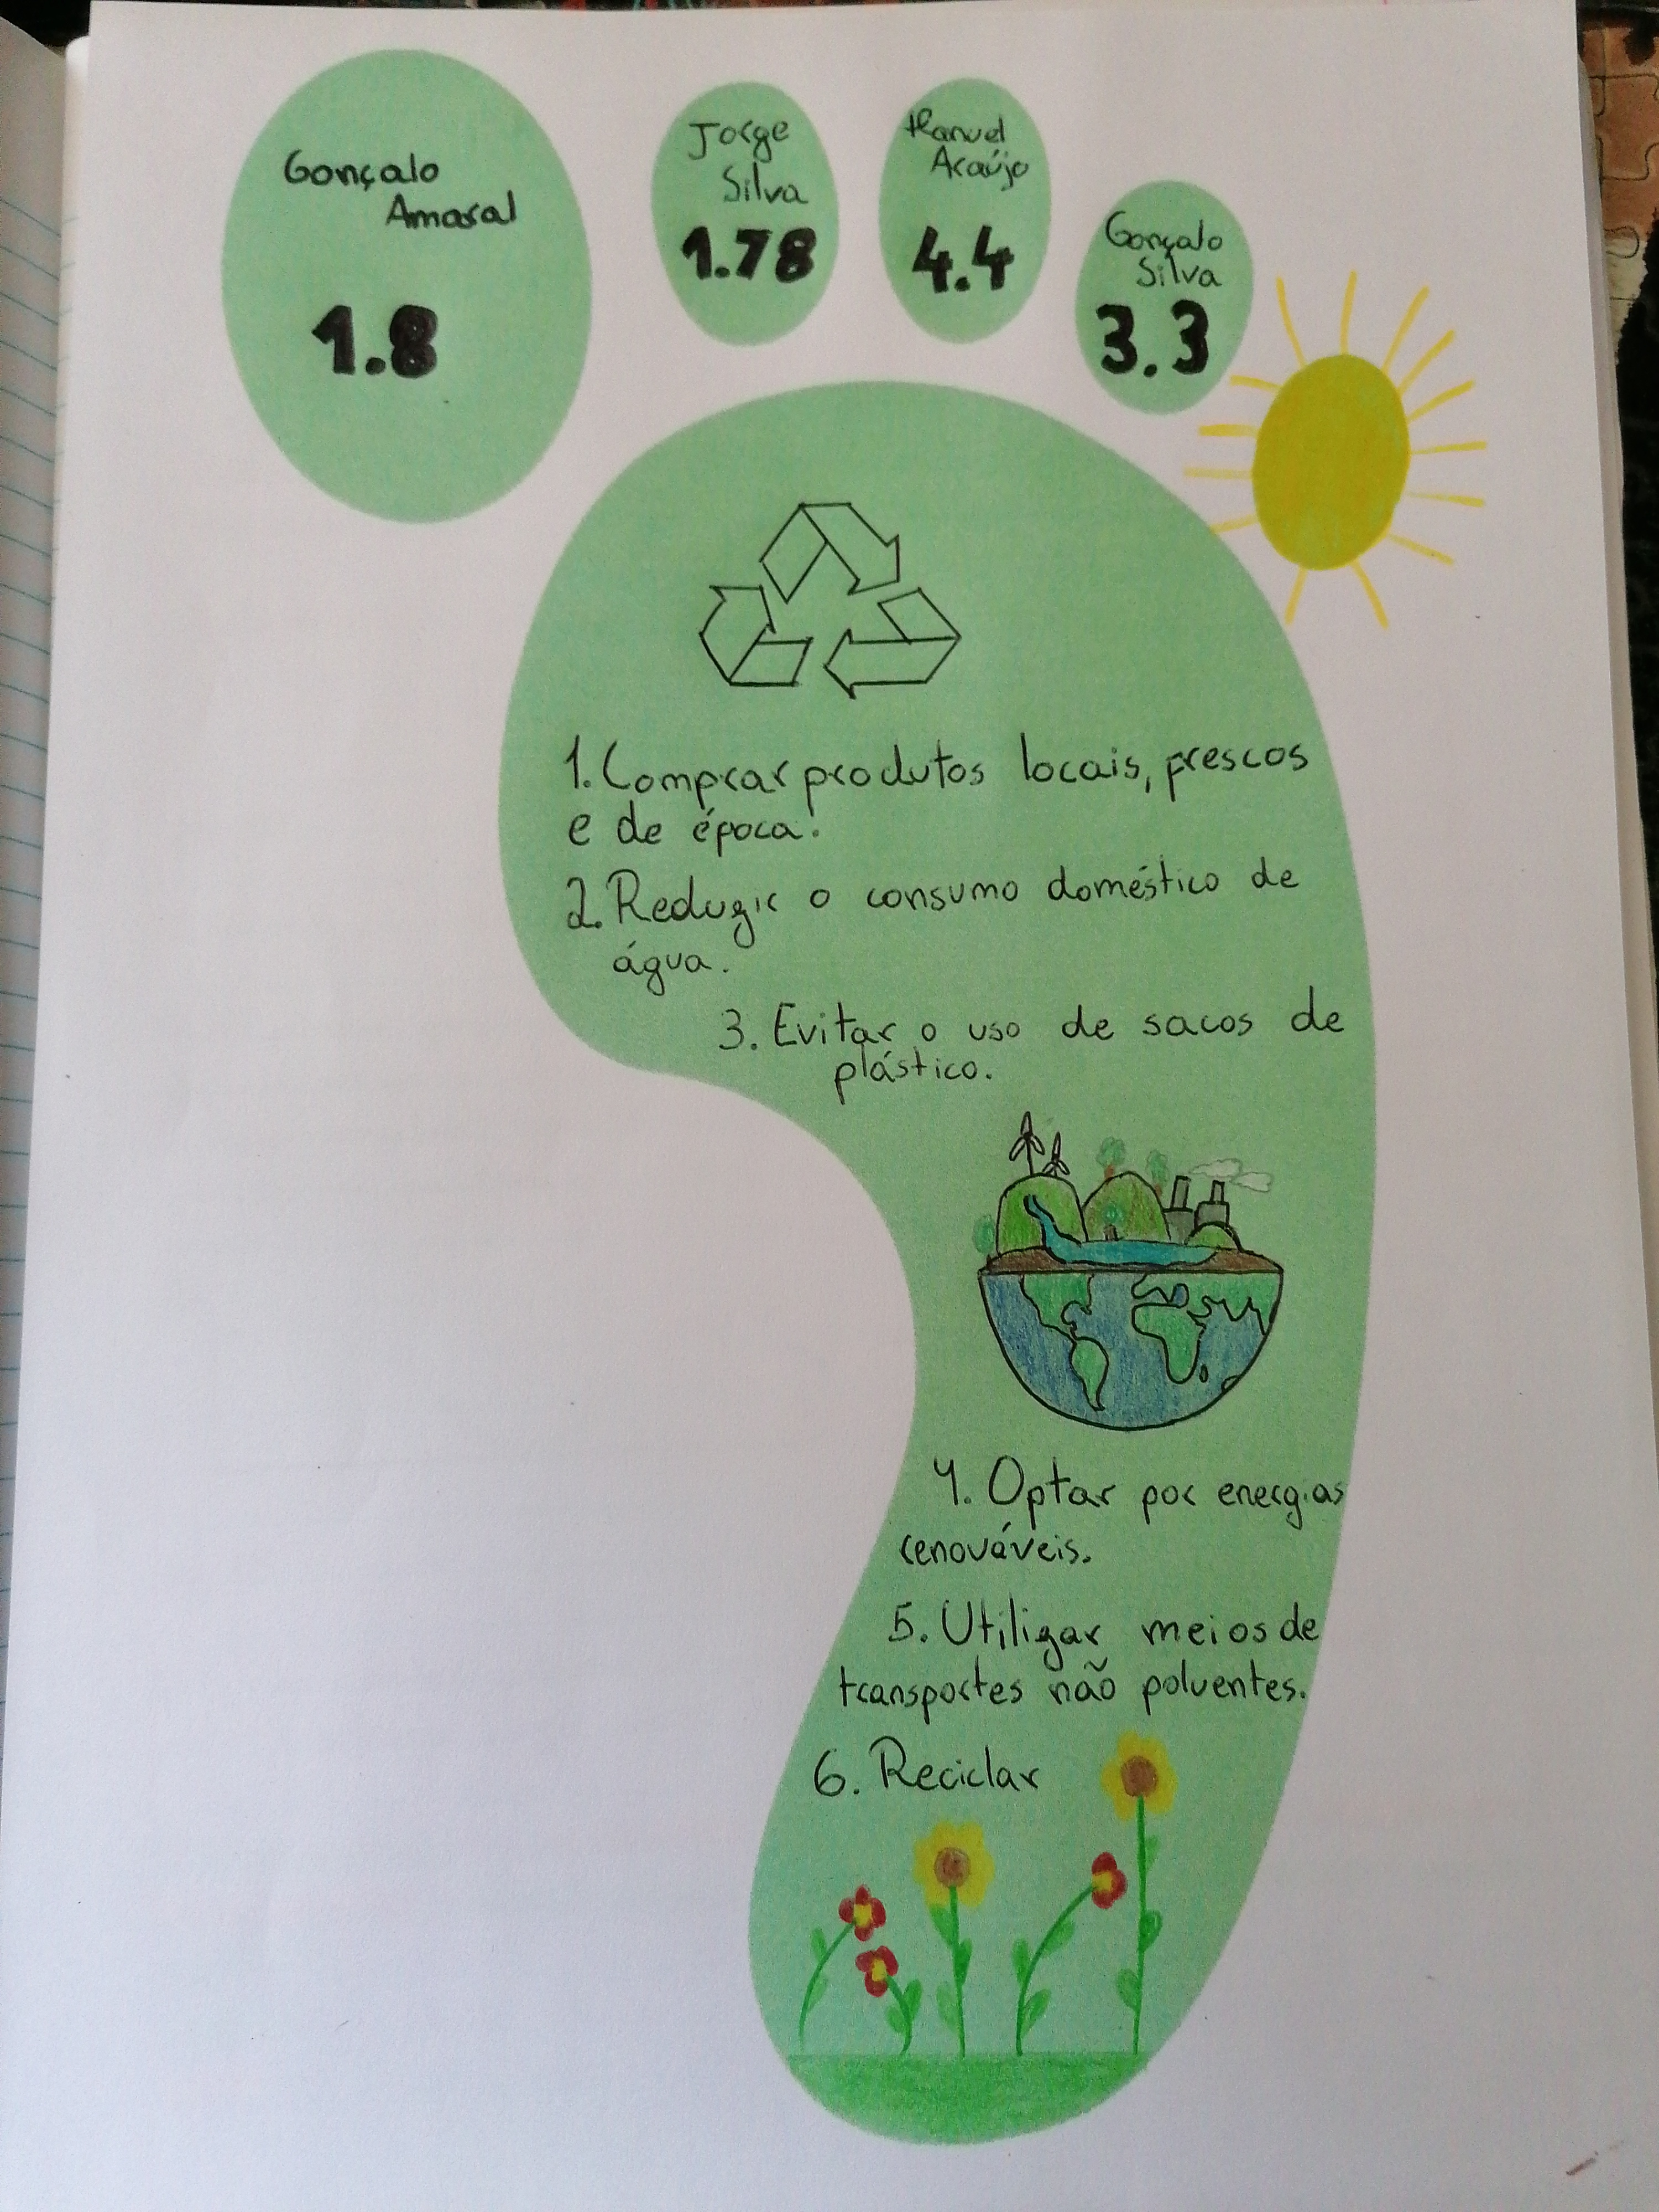 Gonçalo
Amaral
1.8
Jorge
Silva
1.78
Manuel
Araújo
4.4
Gonçalo
Silva
3.3
1. Comprar produtos locais, frescos
e de época!
2. Reduzir o consumo doméstico de
água.
3. Evitar o uso de sacos de
plástico.
4. Optar por energias
renováveis.
5. Utilizar meios de
transportes não poluentes.
6. Reciclar